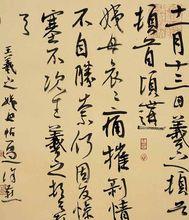 十一月十三日羲之頓首
頓首頃遘
姨母哀哀痛摧剝情
不自勝奈何因反慘
塞不次王羲之頓首
王羲之姨母帖